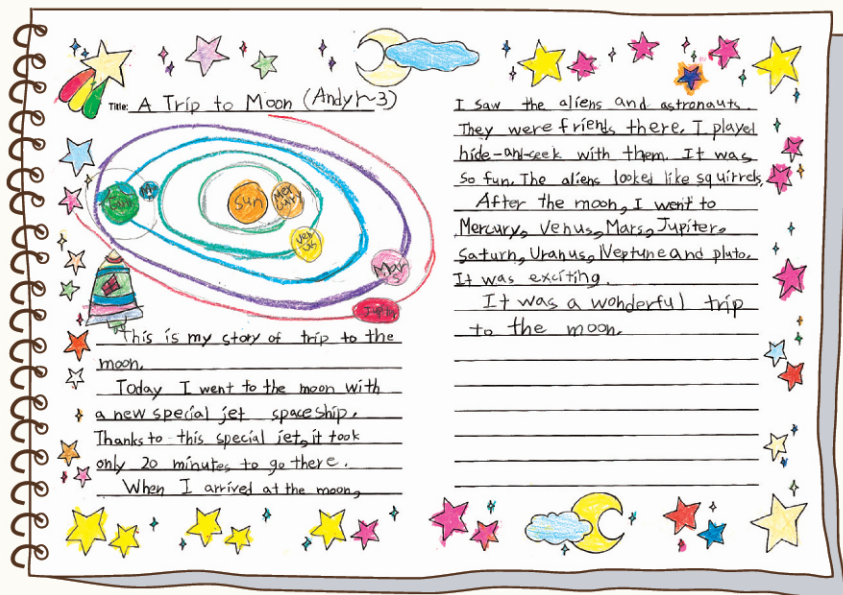 Title: A Trip to Moon (Andy 1~3)
Earth
M
Sun
Mercury
Venus
Mars
Jupiter
This is my story of trip to the
moon.
Today I went to the moon with
a new special jet spaceship.
Thanks to this special jet, it took
only 20 minutes to go there.
When I arrived at the moon,
I saw the aliens and astronauts.
They were friends there. I played
hide-and-seek with them. It was
so fun. The aliens looked like squirrels.
After the moon, I went to
Mercury, Venus, Mars, Jupiter,
Saturn, Uranus, Neptune and pluto.
It was exciting.
It was a wonderful trip
to the moon.